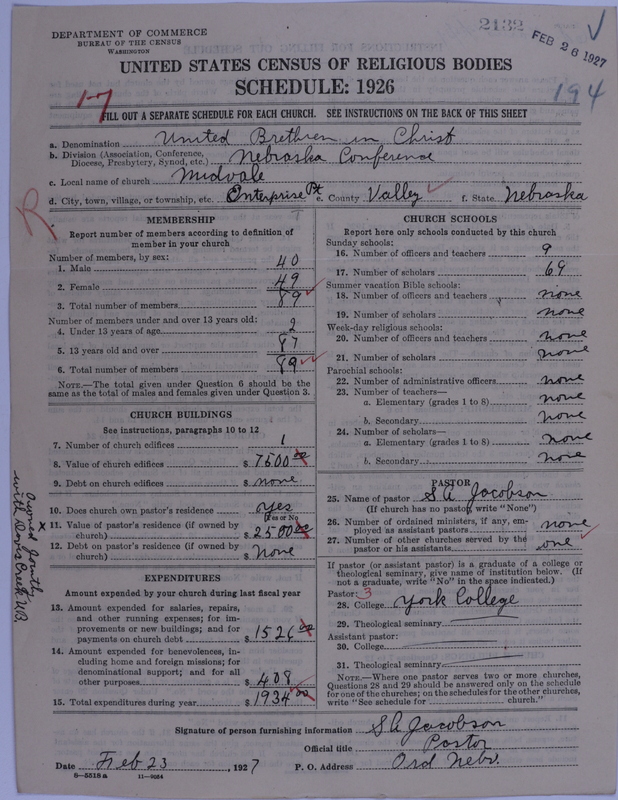 2132
FEB 26 1927
DEPARTMENT OF COMMERCE
BUREAU OF THE CENSUS
WASHINGTON
UNITED STATES CENSUS OF RELIGIOUS BODIES
SCHEDULE: 1926
1-7
194
FILL OUT A SEPARATE SCHEDULE FOR EACH CHURCH. SEE INSTRUCTIONS ON THE BACK OF THIS SHEET
a. Denomination United Brethren in Christ
b. Division (Association, Conference, Diocese, Presbytery, Synod, etc.) Nebraska Conference
c. Local name of church Midvale
d. City, town, village, or township, etc. Enterprise Pt e. County Valley f. State Nebraska
R
MEMBERSHIP
Report number of members according to definition of
member in your church
Number of members, by sex:
1. Male 40
2. Female 49
3. Total number of members 89
Number of members under and over 13 years old:
4. Under 13 years of age 2
5. 13 years old and over 87
6. Total number of members 89
NOTE.—The total given under Question 6 should be
same as the total of males and females given under Question 3.
CHURCH BUILDINGS
See instructions, paragraphs 10 to 12
7. Number of church edifices 1
8. Value of church edifices $ 7500 00
9. Debt on church edifices $ none
10. Does church own pastor's residence yes
(Yes or No)
11. Value of pastor's residence (if owned by
church) $ 2500 00
12. Debt on pastor's residence (if owned by
church) $ none
x
Owned Jointly
with Davis Creek U.B.
EXPENDITURES
Amount expended by your church during last fiscal year
13. Amount expended for salaries, repairs,
and other running expenses; for im-
provements or new buildings; and for
payments on church debt $ 1526 00
14. Amount expended for benevolences, in-
cluding home and foreign missions; for
denominational support; and for all
other purposes $ 408
15. Total expenditures during year $ 1934 00
CHURCH SCHOOLS
Report here only schools conducted by this church
Sunday schools:
16. Number of officers and teachers 9
17. Number of scholars 69
Summer vacation Bible schools:
18. Number of officers and teachers none
19. Number of scholars none
Week-day religious schools:
20. Number of officers and teachers none
21. Number of scholars none
Parochial schools:
22. Number of administrative officers none
23. Number of teachers—
a. Elementary (grades 1 to 8) none
b. Secondary none
24. Number of scholars—
a. Elementary (grades 1 to 8) none
b. Secondary none
PASTOR
25. Name of pastor S A Jacobson
(If church has no pastor, write "None")
26. Number of ordained ministers, if any, em-
ployed as assistant pastors none
27. Number of other churches served by the
pastor or his assistants one
If pastor (or assistant pastor) is a graduate of a college or
theological seminary, give name of institution below. (If
not a graduate, write "No" in the space indicated.)
Pastor: 3
28. College York College
29. Theological seminary
Assistant pastor:
30. College
31. Theological seminary
NOTE.—Where one pastor serves two or more churches,
Questions 28 and 29 should be answered only on the schedule
for one of the churches; on the schedules for the other churches,
write "See schedule for church."
Signature of person furnishing information S A Jacobson
Official title Pastor
Date Feb 23, 1927 P. O. Address Ord Nebr.
8—5518a 11—9064